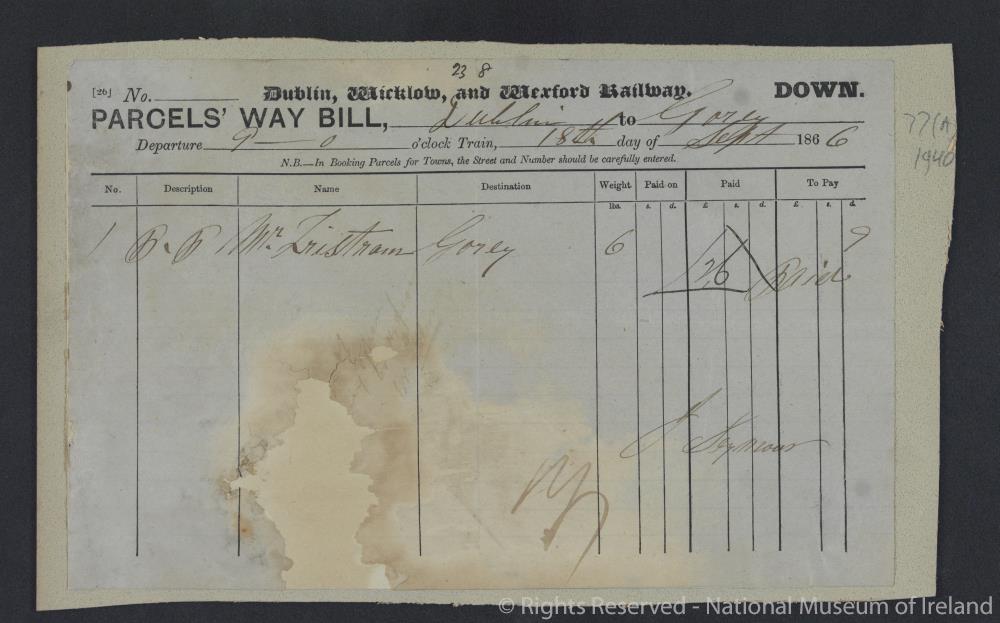 23 8
[26] No. Dublin, Wicklow, and Wexford Railway. DOWN.
PARCELS' WAY BILL, Dublin to Gorey
Departure 9—0 o'clock Train, 18th day of Sept 1866
N.B.—In Booking Parcels for Towns, the Street and Number should be carefully entered.
77(A)
1940
No. Description Name Destination Weight Paid on Paid To Pay
lbs. s. d. £ s. d. £ s. d.
1 P.P Mr. Tristram Gorey 6 9
126 Paid
J Seymour
© Rights Reserved - National Museum of Ireland